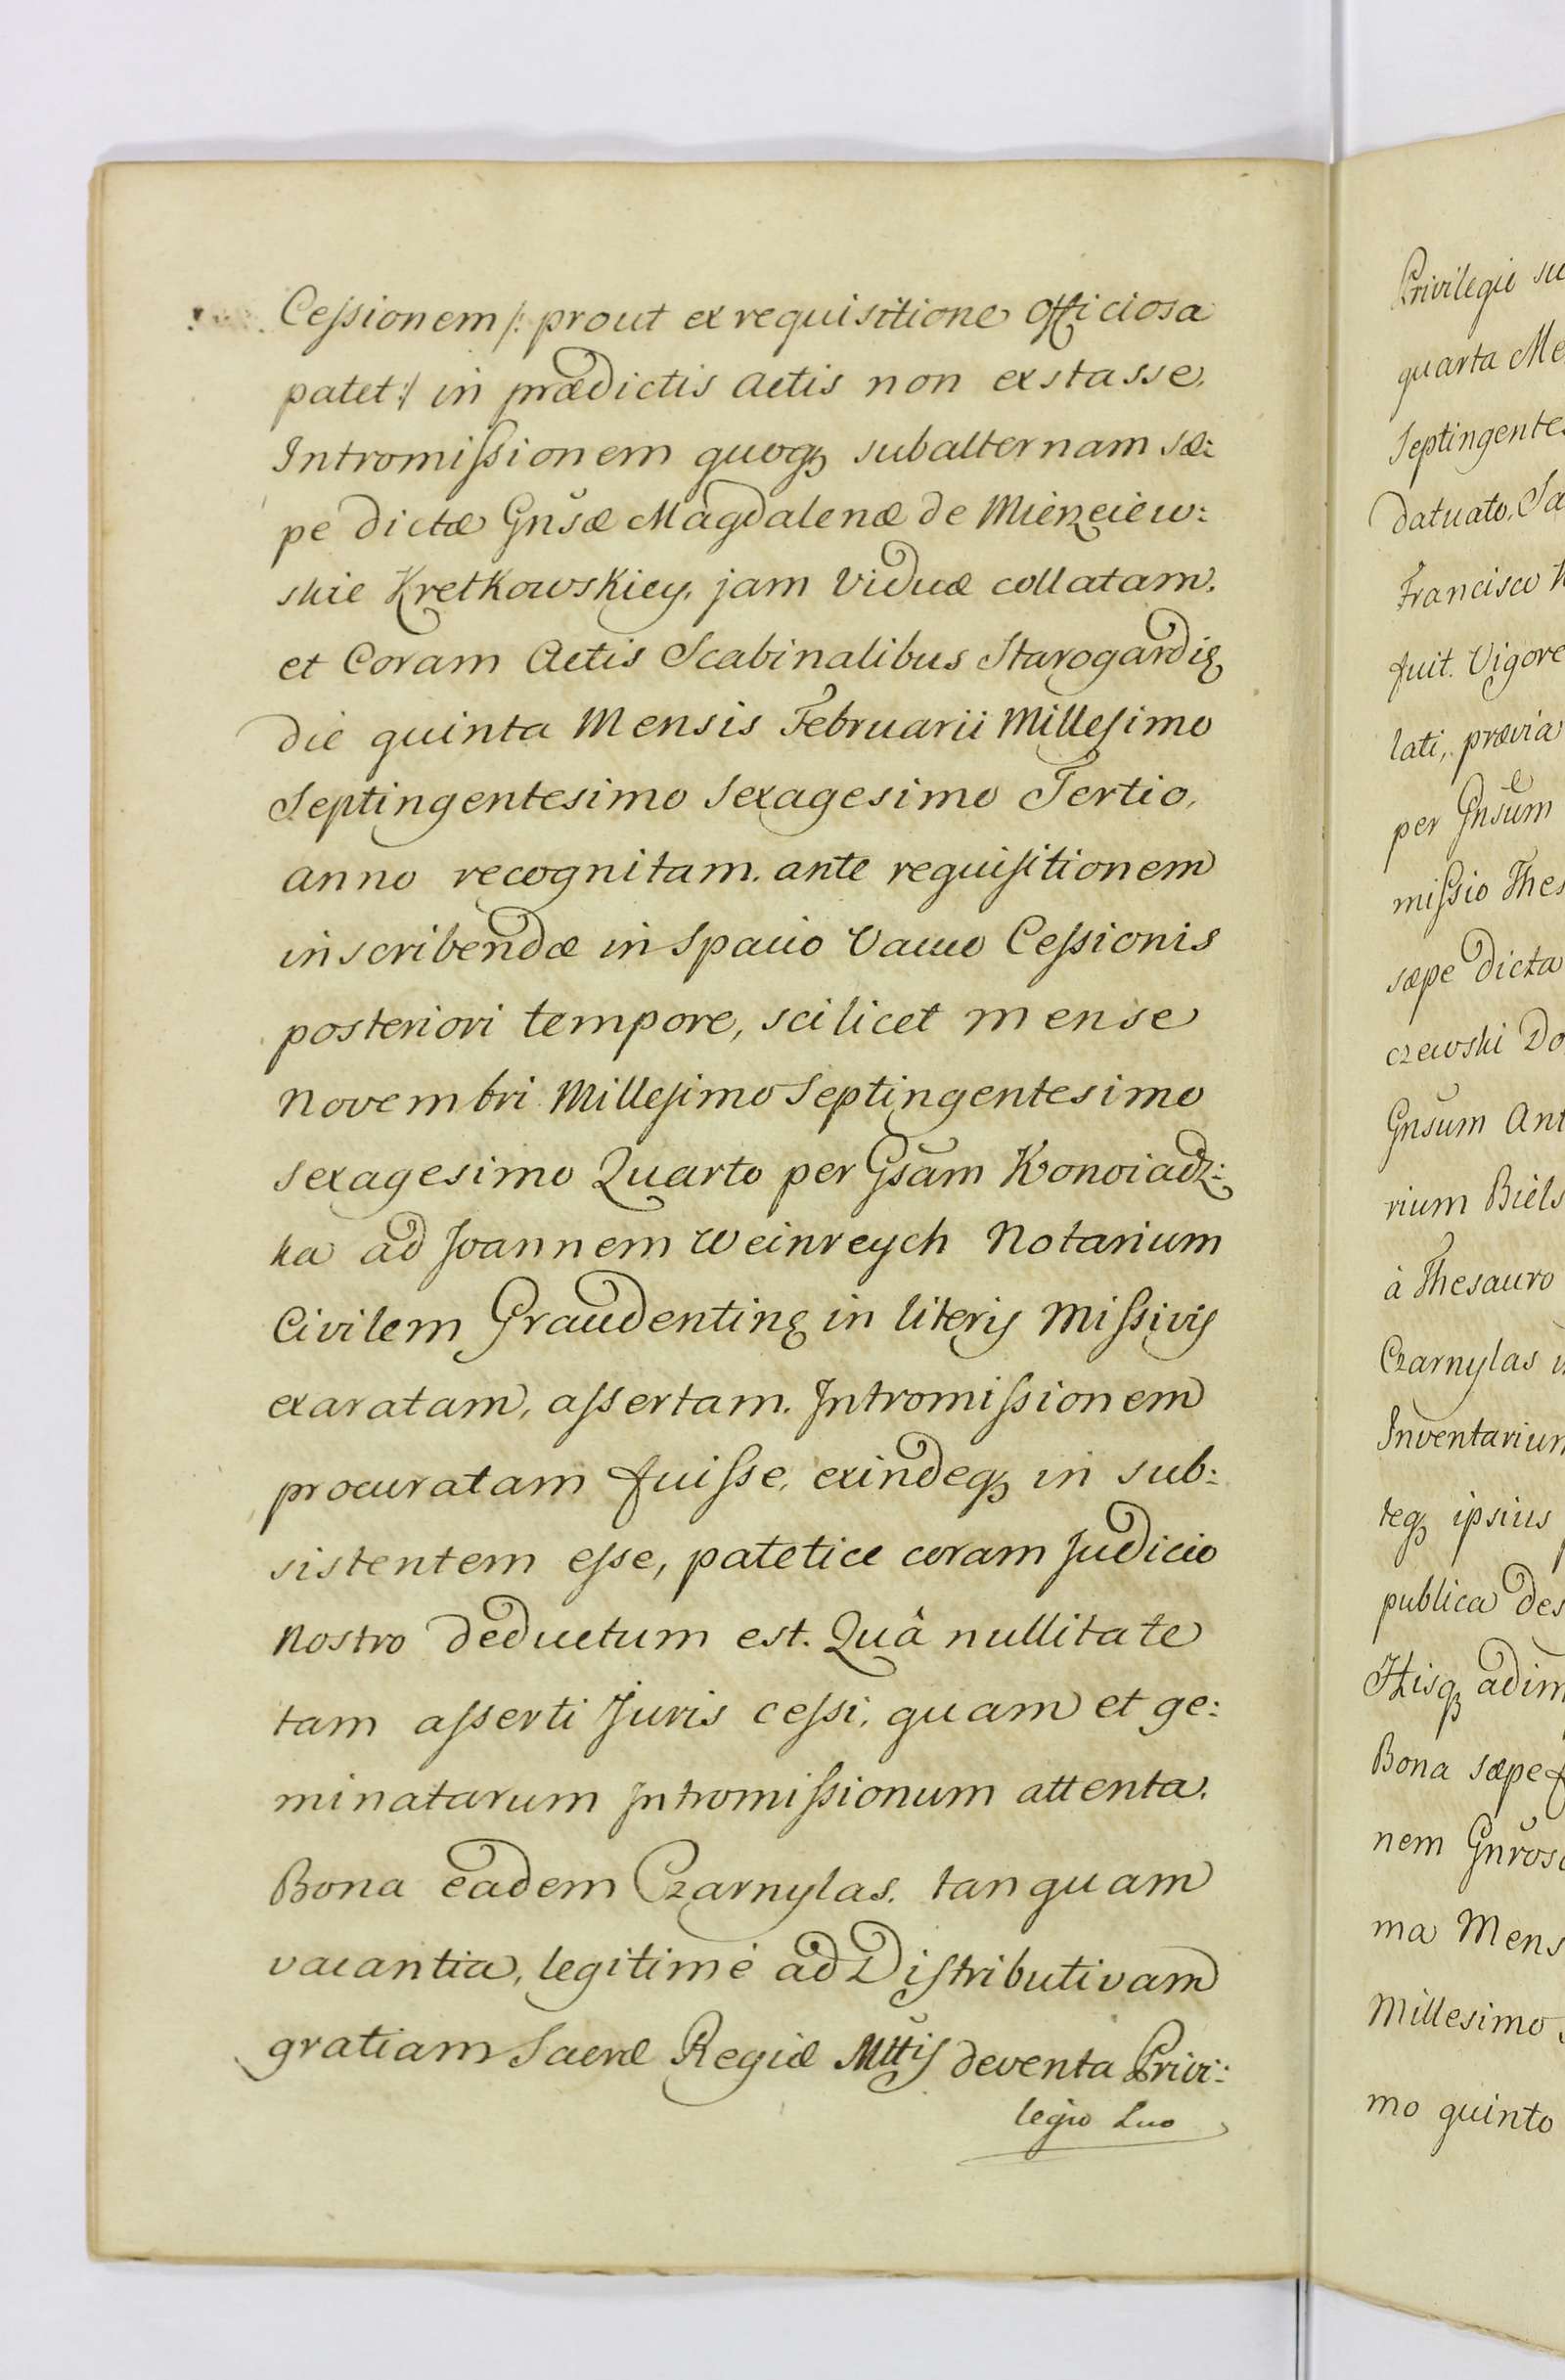 Cessionem /: prout ex requisitione Officiosa
patet :/ in prædictis Actis non exstasse.
Intromissionem quoq3 subalternam sæ:
pe dictæ Gnsæ Magdalenæ de Mierzeiew:
skie Kretkowskiey, jam Viduæ collatam,
et Coram Actis Scabinalibus Starogardis
die quinta Mensis Februarii Millesimo
Septingentesimo Sexagesimo Tertio,
anno recognitam. ante requisitionem
inscribendæ in Spacio Vacuo Cessionis
posteriori tempore, scilicet mense
Novembri Millesimo Septingentesimo
Sexagesimo Quarto per Gsam Konoiadz:
ka ad Joannem Weinreych Notarium
Civilem Graudentinę in literis Missivis
exaratam, assertam. Intromissionem
procuratam fuisse, exindeq3 in sub:
sistentem esse, patetice coram Judicio
Nostro deductum est. Quâ nullitate
tam asserti Juris cessi, quam et ge:
minatarum Intromissionum attenta.
Bona eadem Czarnylas, tanquam
vacantia, legitimè ad Distributivam
gratiam Sacræ Regiæ Mttis deventa Privi:
legio Suo
Privilegio su
quarta Me
Septingentes
datuato, Sa
Francisco
fuit. Vigore
lati, prævia
per Gnsum
missio Thes
sæpe dicta
czewski Do
Gnsum Ant
rium Biels
à Thesauro
Czarnylas
Inventarium
teq3 ipsius
publica des
Hisq3 adim
Bona sæpe f
nem Gnros
ma Mens
Millesimo
mo quinto